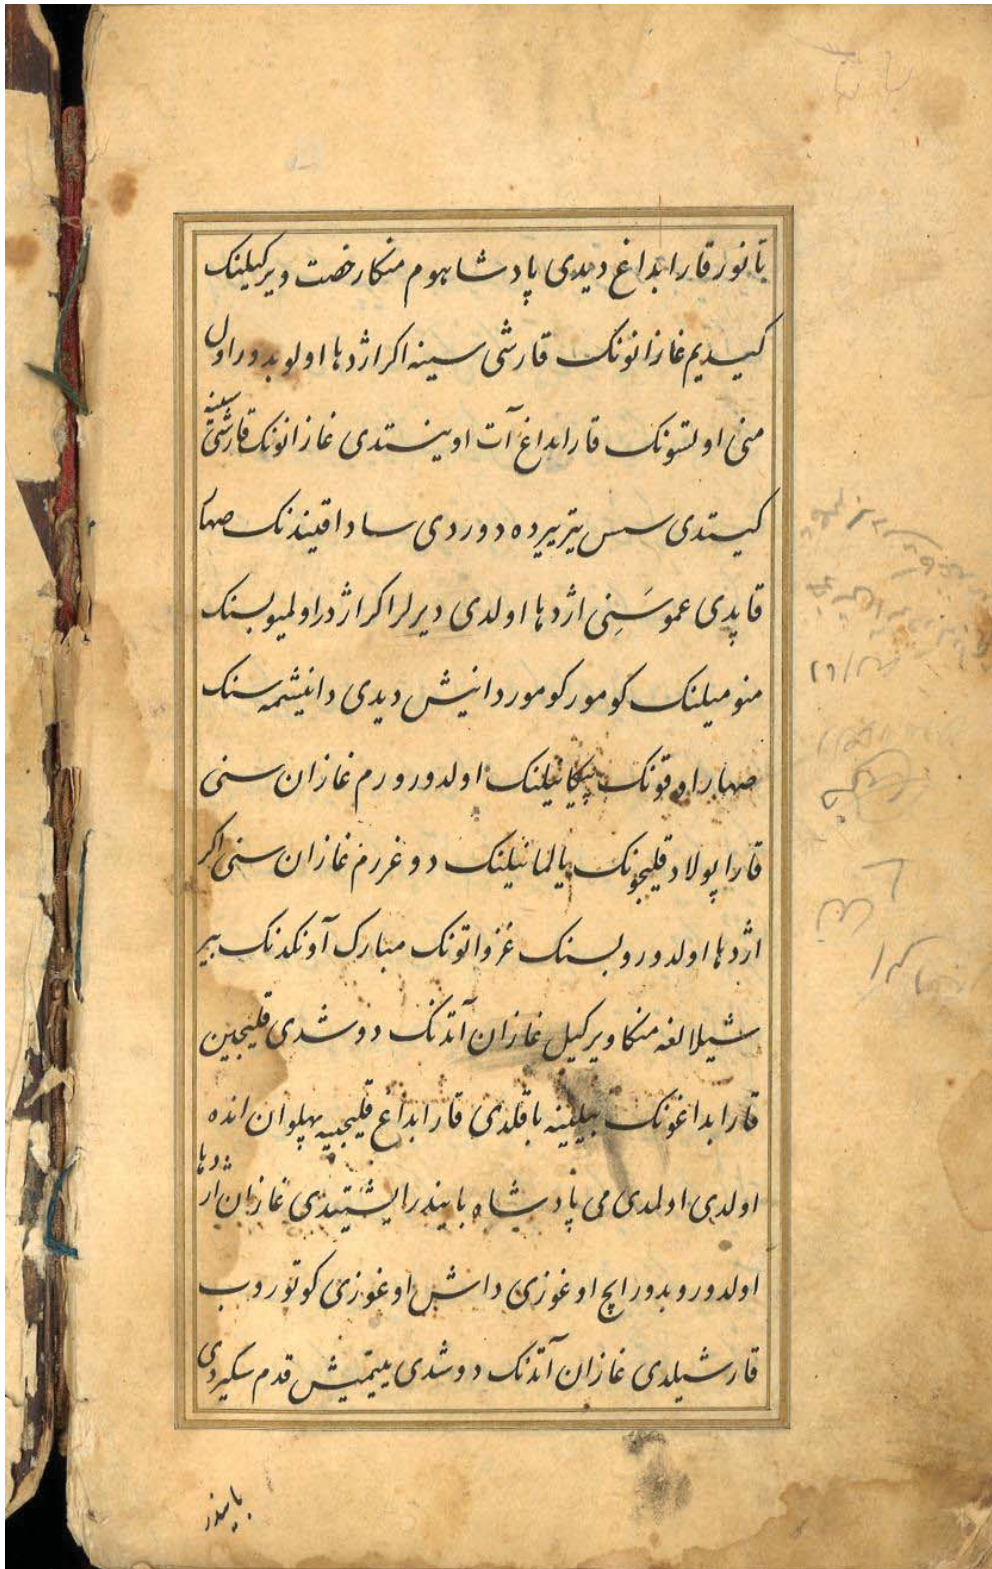 باتور قارابداغ دیدی پادشاهوم منکا رخصت ویرکیلنک
کیدیم غازانونک قارشی سینه اکر اژدها اولوبدور اول
منی اولتسونک قارابداغ آت اوینتدی غازانونک قارشی سینه
کیتدی سس یتریرده دوردی ساداقیندنک صها
قاپدی عموسَنِی اژدها اولدی دیرلر اکر اژدر اولمیوبسنک
منومیلنک کومور کومور دانیش دیدی دانیشمه سنک
صهار اوقونک پیکانیلنک اولدورورم غازان سنی
قارا پولاد قلیجونک یالمانیلنک دوغررم غازان سنی اکر
اژدها اولدوروبسنک غزواتونک مبارک آونکدنک بیر
شیلالغه منکا ویرکیل غازان آتدنک دوشدی قلیجین
قارابداغونک بیلینه باقلدی قارابداغ قلیجییه پهلوان انده
اولدی اولدی می پادشاه بایندر ایشیتدی غازان اژدها
اولدوروبدور ایچ اوغوزی داش اوغوزی کوتوروب
قارشیلدی غازان آتدنک دوشدی ییتمیش قدم سکیردی
بایندر